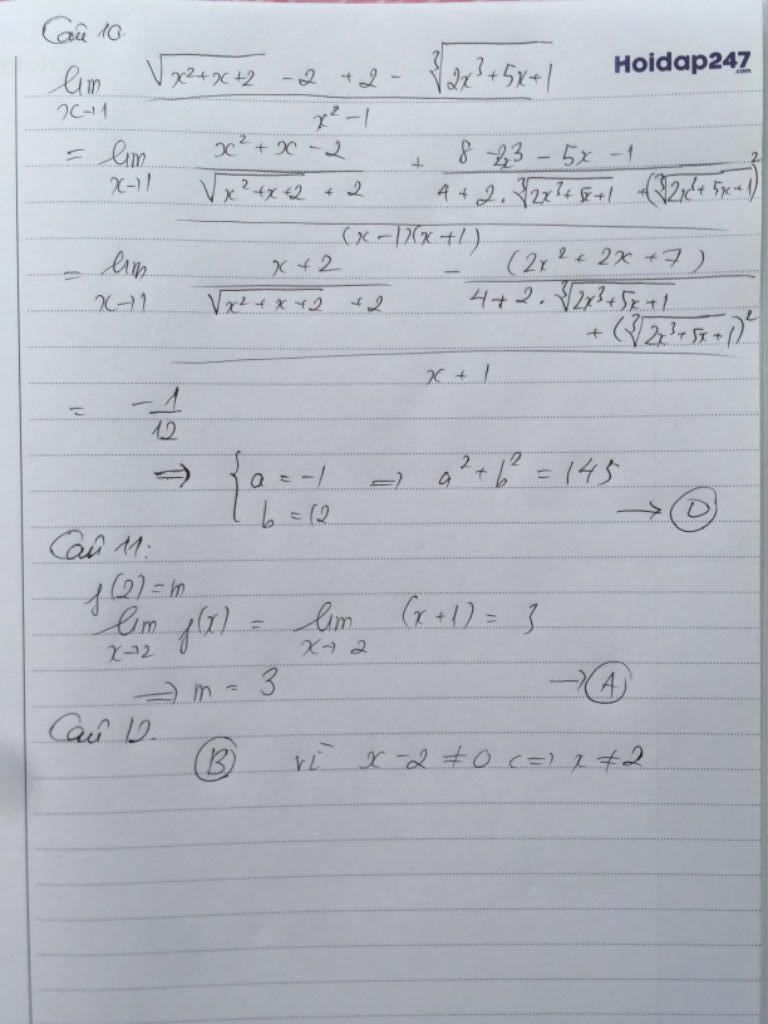 Câu 10.
Hoidap247
.com
lim x→1 (√(x²+x+2) - 2 + 2 - ∛(2x³+5x+1)) / (x²-1)
= lim x→1 ((x²+x-2)/(√(x²+x+2) + 2) + (8-2x³-5x-1)/(4+2.∛(2x³+5x+1) + (∛(2x³+5x+1))²)) / ((x-1)(x+1))
= lim x→1 ((x+2)/(√(x²+x+2) + 2) - (2x²+2x+7)/(4+2.∛(2x³+5x+1) + (∛(2x³+5x+1))²)) / (x+1)
= -1/12
⇒ { a = -1 ⇒ a²+b² = 145
b = 12 → D
Câu 11:
f(2) = m
lim x→2 f(x) = lim x→2 (x+1) = 3
⇒ m = 3 → A
Câu 12.
B vì x-2 ≠ 0 <=> x ≠ 2